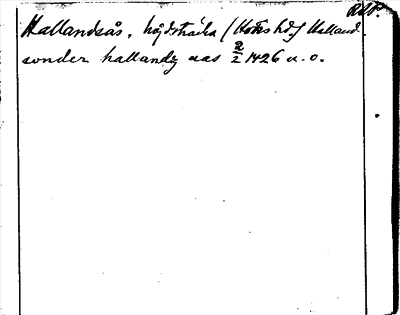 RAP.
Hallandsås, höjdsträcka (Höks hd) Halland
sunder hallandz aas 2/2 1426 u. o.